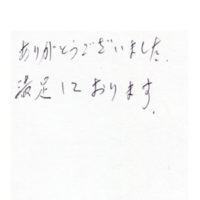 ありがとうございました.
満足しております.